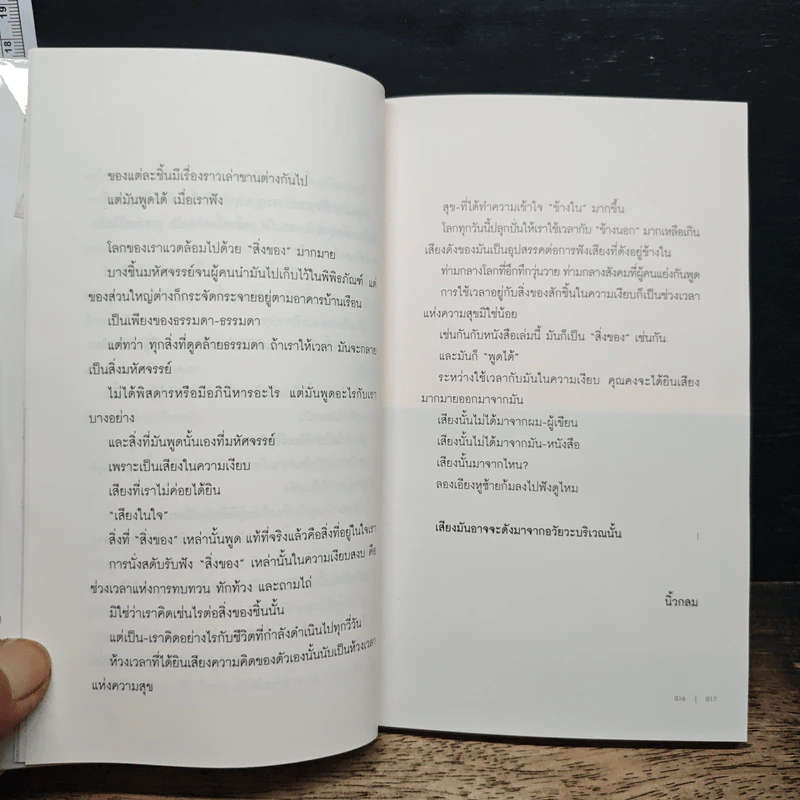 19
18
ของแต่ละชิ้นมีเรื่องราวเล่าขานต่างกันไป
แต่มันพูดได้ เมื่อเราฟัง
โลกของเราแวดล้อมไปด้วย “สิ่งของ” มากมาย
บางชิ้นมหัศจรรย์จนผู้คนนำมันไปเก็บไว้ในพิพิธภัณฑ์ แต่
ของส่วนใหญ่ต่างก็กระจัดกระจายอยู่ตามอาคารบ้านเรือน
เป็นเพียงของธรรมดา-ธรรมดา
แต่ทว่า ทุกสิ่งที่ดูคล้ายธรรมดา ถ้าเราให้เวลา มันจะกลาย
เป็นสิ่งมหัศจรรย์
ไม่ได้พิสดารหรือมีอภินิหารอะไร แต่มันพูดอะไรกับเรา
บางอย่าง
และสิ่งที่มันพูดนั้นเองที่มหัศจรรย์
เพราะเป็นเสียงในความเงียบ
เสียงที่เราไม่ค่อยได้ยิน
“เสียงในใจ”
สิ่งที่ “สิ่งของ” เหล่านั้นพูด แท้ที่จริงแล้วคือสิ่งที่อยู่ในใจเรา
การนั่งสดับรับฟัง “สิ่งของ” เหล่านั้นในความเงียบสงบ คือ
ช่วงเวลาแห่งการทบทวน ทักท้วง และถามไถ่
มิใช่ว่าเราคิดเช่นไรต่อสิ่งของชิ้นนั้น
แต่เป็น-เราคิดอย่างไรกับชีวิตที่กำลังดำเนินไปทุกวี่วัน
ห้วงเวลาที่ได้ยินเสียงความคิดของตัวเองนั้นนับเป็นห้วงเวลา
แห่งความสุข
สุข-ที่ได้ทำความเข้าใจ “ข้างใน” มากขึ้น
โลกทุกวันนี้ปลุกปั่นให้เราใช้เวลากับ “ข้างนอก” มากเหลือเกิน
เสียงดังของมันเป็นอุปสรรคต่อการฟังเสียงที่ดังอยู่ข้างใน
ท่ามกลางโลกที่อึกทึกวุ่นวาย ท่ามกลางสังคมที่ผู้คนแย่งกันพูด
การใช้เวลาอยู่กับสิ่งของสักชิ้นในความเงียบก็เป็นช่วงเวลา
แห่งความสุขมิใช่น้อย
เช่นกันกับหนังสือเล่มนี้ มันก็เป็น “สิ่งของ” เช่นกัน
และมันก็ “พูดได้”
ระหว่างใช้เวลากับมันในความเงียบ คุณคงจะได้ยินเสียง
มากมายออกมาจากมัน
เสียงนั้นไม่ได้มาจากผม-ผู้เขียน
เสียงนั้นไม่ได้มาจากมัน-หนังสือ
เสียงนั้นมาจากไหน?
ลองเอียงหูซ้ายก้มลงไปฟังดูไหม
เสียงมันอาจจะดังมาจากอวัยวะบริเวณนั้น
นิ้วกลม
016 | 017